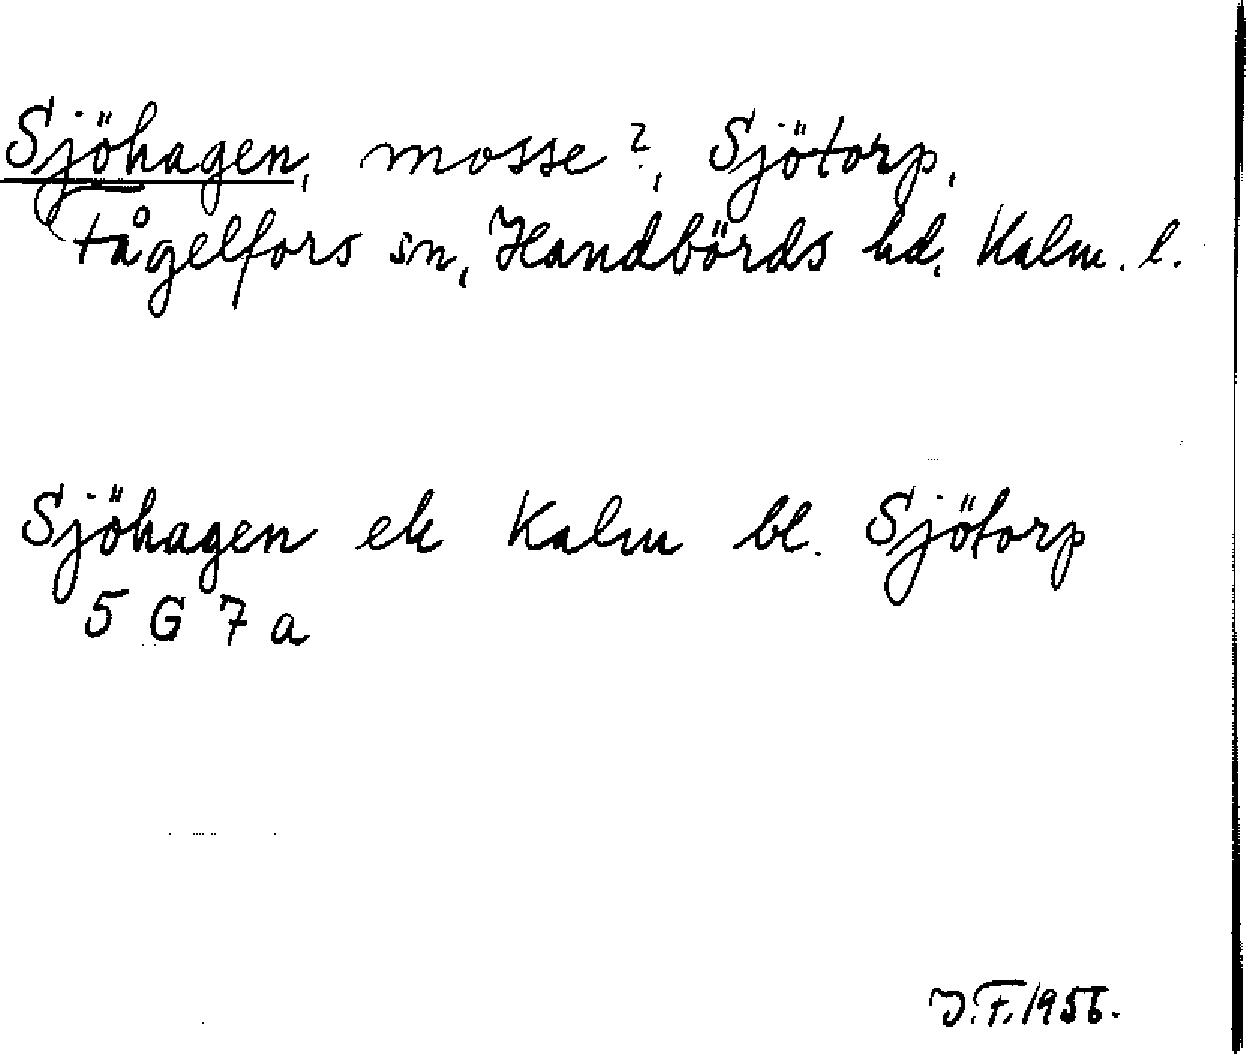 Sjöhagen, mosse?, Sjötorp,
Fågelfors sn, Handbörds hd, Kalm. l.
Sjöhagen ek Kalm bl. Sjötorp
5 G 7 a
J.F. 1956.